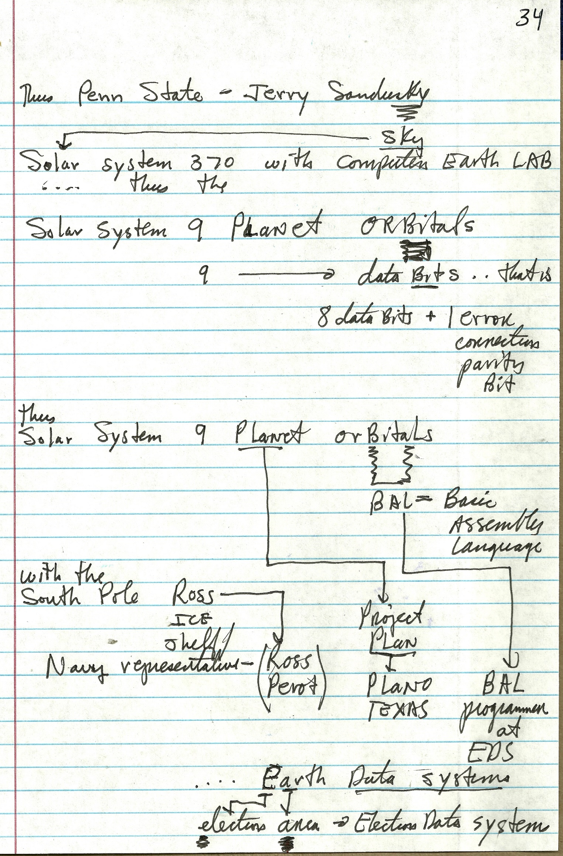 34
Thus Penn State - Jerry Sandusky
sky
Solar system 370 with computer Earth LAB
.... thus the
Solar System 9 Planet ORBitals
9 → data Bits .. that is
8 data Bits + 1 error
correction
parity
Bit
thus
Solar System 9 Planet orBitals
BAL = Basic
Assembly
Language
with the
South Pole Ross
ICE
Shelf
Project
Plan
Navy representative - (Ross
Perot)
PLANO
TEXAS
BAL
programmer
at
EDS
.... Earth Data systems
election area → Election Data system